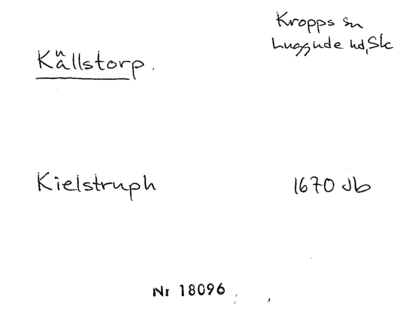 Kropps sn
Källstorp.
Luggude hd, Sk
Kielstruph 1670 Jb
Nr 18096